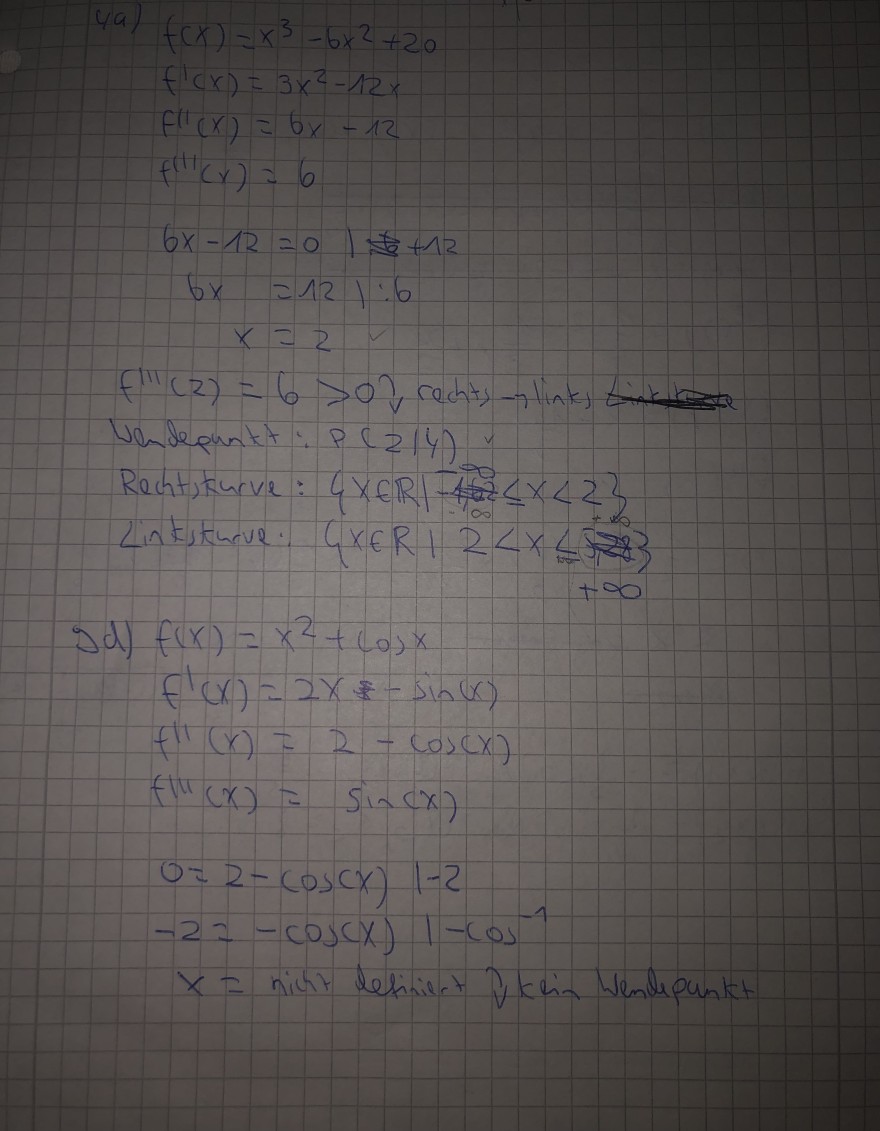 4a) f(x) = x³ - 6x² + 20
f'(x) = 3x² - 12x
f''(x) = 6x - 12
f'''(x) = 6
6x - 12 = 0 | +12
6x = 12 | :6
x = 2 ✓
f'''(2) = 6 > 0 ↷ rechts → links
Wendepunkt: P(2|4) ✓
Rechtskurve: {x∈ℝ | -∞ ≤ x < 2}
Linkskurve: {x∈ℝ | 2 < x ≤ +∞}
9d) f(x) = x² + cos x
f'(x) = 2x - sin(x)
f''(x) = 2 - cos(x)
f'''(x) = sin(x)
0 = 2 - cos(x) | -2
-2 = -cos(x) | -cos⁻¹
x = nicht definiert ↷ kein Wendepunkt